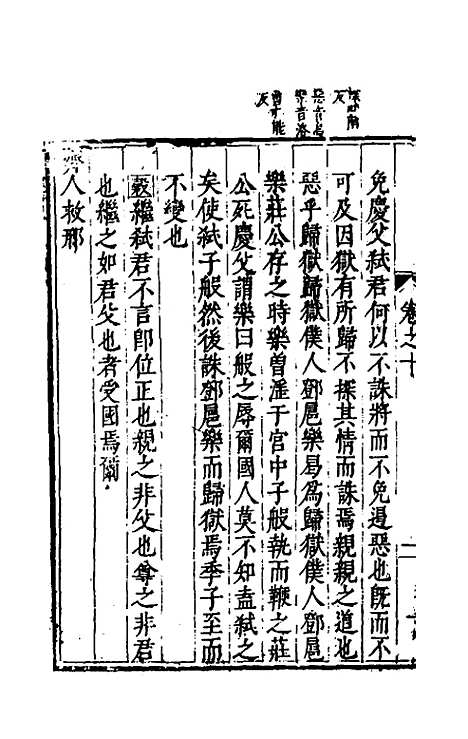 卷之十
免慶父弑君何以不誅將而不免遏惡也旣而不
可及因獄有所歸不探其情而誅焉親親之道也
惡乎歸獄歸獄僕人鄧扈樂曷爲歸獄僕人鄧扈
樂莊公存之時樂曾淫于宮中子般執而鞭之莊
公死慶父謂樂曰般之辱爾國人莫不知盍弑之
矣使弑子般然後誅鄧扈樂而歸獄焉季子至而
不變也
穀繼弑君不言卽位正也親之非父也尊之非君
也繼之如君父也者受國焉爾
齊人救邢
惡音烏
樂音洛
反
反